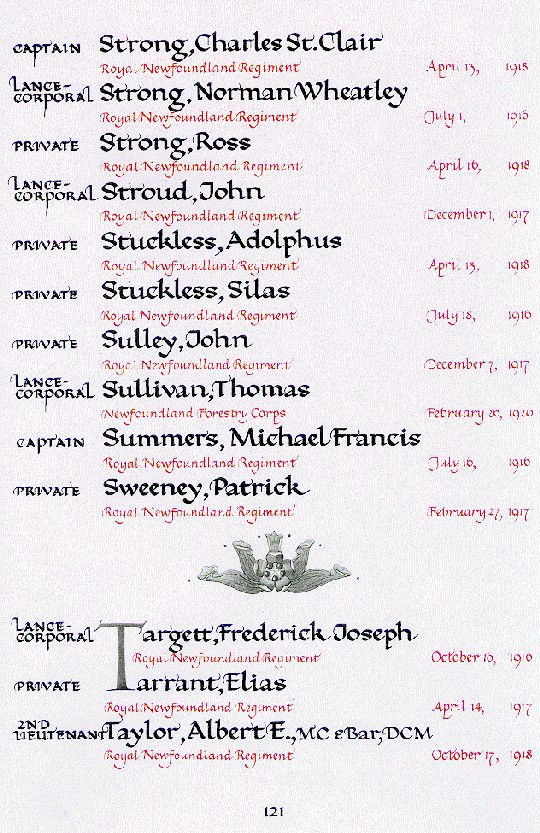 CAPTAIN Strong, Charles St. Clair
Royal Newfoundland Regiment April 13, 1918
LANCE-
CORPORAL Strong, Norman Wheatley
Royal Newfoundland Regiment July 1,
PRIVATE Strong, Ross
Royal Newfoundland Regiment April 16, 1918
LANCE-
CORPORAL Stroud, John
Royal Newfoundland Regiment December 1, 1917
PRIVATE Stuckless, Adolphus
Royal Newfoundland Regiment April 13, 1918
PRIVATE Stuckless, Silas
Royal Newfoundland Regiment July 18, 1916
PRIVATE Sulley, John
Royal Newfoundland Regiment December 7, 1917
LANCE-
CORPORAL Sullivan, Thomas
Newfoundland Forestry Corps February 20, 1920
CAPTAIN Summers, Michael Francis
Royal Newfoundland Regiment July 16, 1916
PRIVATE Sweeney, Patrick
Royal Newfoundland Regiment February 27, 1917
LANCE-
CORPORAL Targett, Frederick Joseph
Royal Newfoundland Regiment October 10, 1916
PRIVATE Tarrant, Elias
Royal Newfoundland Regiment April 14, 1917
2ND
LIEUTENANT Taylor, Albert E., MC & Bar, DCM
Royal Newfoundland Regiment October 17, 1918
121